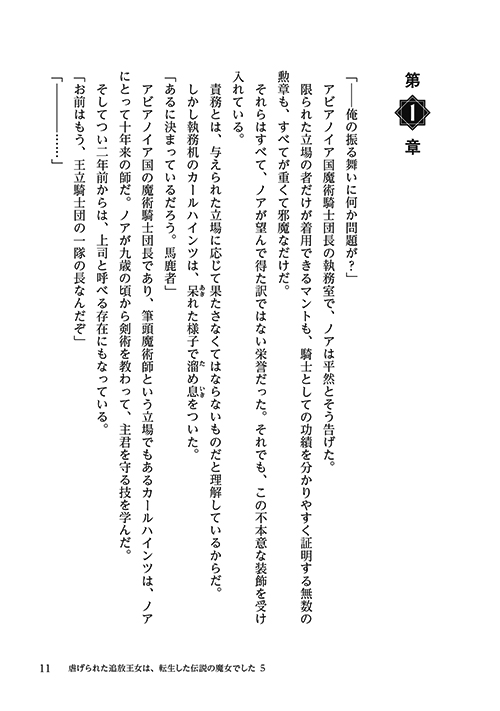 第1章
「――俺の振る舞いに何か問題が?」
アビアノイア国魔術騎士団長の執務室で、ノアは平然とそう告げた。
限られた立場の者だけが着用できるマントも、騎士としての功績を分かりやすく証明する無数の
勲章も、すべてが重くて邪魔なだけだ。
それらはすべて、ノアが望んで得た訳ではない栄誉だった。それでも、この不本意な装飾を受け
入れている。
責務とは、与えられた立場に応じて果たさなくてはならないものだと理解しているからだ。
しかし執務机のカールハインツは、呆れた様子で溜め息をついた。
「あるに決まっているだろう。馬鹿者」
アビアノイア国の魔術騎士団長であり、筆頭魔術師という立場でもあるカールハインツは、ノア
にとって十年来の師だ。ノアが九歳の頃から剣術を教わって、主君を守る技を学んだ。
そしてつい二年前からは、上司と呼べる存在にもなっている。
「お前はもう、王立騎士団の一隊の長なんだぞ」
「――――……」
11 虐げられた追放王女は、転生した伝説の魔女でした 5